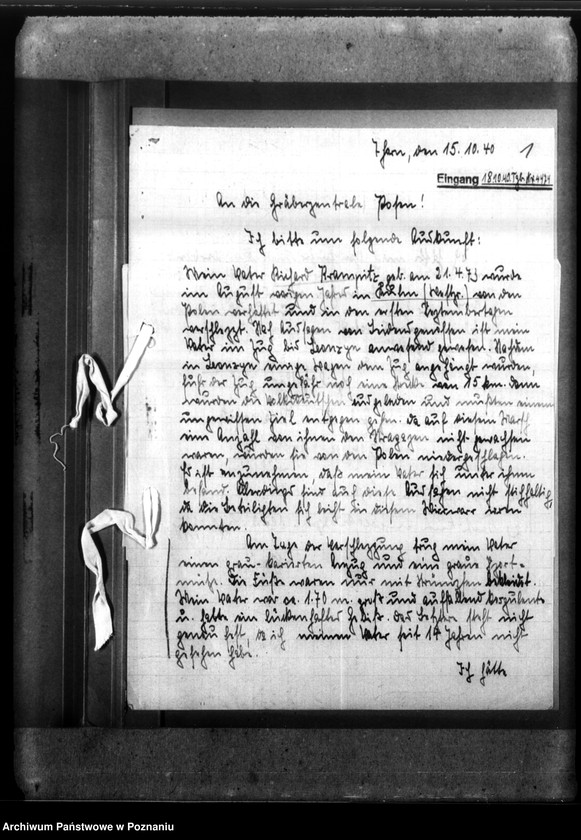 Thorn, den 15. 10. 40 1
Eingang 18.10.40. Tgb. Nr. 4421
An die Gräberzentrale Posen!
Ich bitte um folgende Auskunft:
Mein Vater Richard Krampitz geb. am 21. 4. 73 wurde
im August vorigen Jahres in (Westpr.) von den
Polen verhaftet und in den ersten Septembertagen
verschleppt. Nach Aussagen von Leidensgenossen ist mein
Vater im Zug bis anwesend gewesen. Nachdem
in einige Wagen dem Zug angehängt wurden,
fuhr der Zug ungefähr noch eine Strecke von 15 km. dann
wurden die Volksdeutschen ausgeladen und mussten einem
ungewissen Ziel entgegen gehen. Da auf diesem Marsch
eine Anzahl von ihnen den Strapazen nicht gewachsen
waren, wurden sie von den Polen niedergeschlagen.
Es ist anzunehmen, daß mein Vater sich unter ihnen
befand. Allerdings sind auch diese Aussagen nicht stichhaltig,
da die Beteiligten sich leicht in diesem Wirrwarr irren
konnten.
Am Tage der Verschleppung trug mein Vater
einen grau-karierten Anzug und eine graue Sport-
mütze. Die Füße waren nur mit Strümpfen bekleidet.
Mein Vater war ca. 1.70 m. groß und auffallend korpulent
u. hatte ein lückenhaftes Gebiß. Das Letztere steht nicht
genau fest, da ich meinen Vater seit 14 Jahren nicht
gesehen habe.
Ich hätte
Archiwum Państwowe w Poznaniu